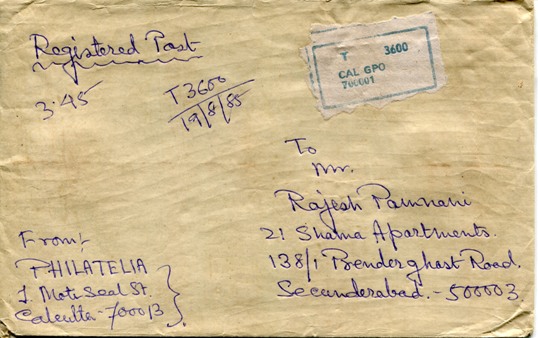 Registered Post
3.45
T3600
19/8/85
T 3600
CAL GPO
700001
To
Mr.
Rajesh Pamnani
21 Shama Apartments.
138/1 Penderghast Road.
Secunderabad. - 500003
From :-
PHILATELIA
1, Moti Seal St.
Calcutta - 700013